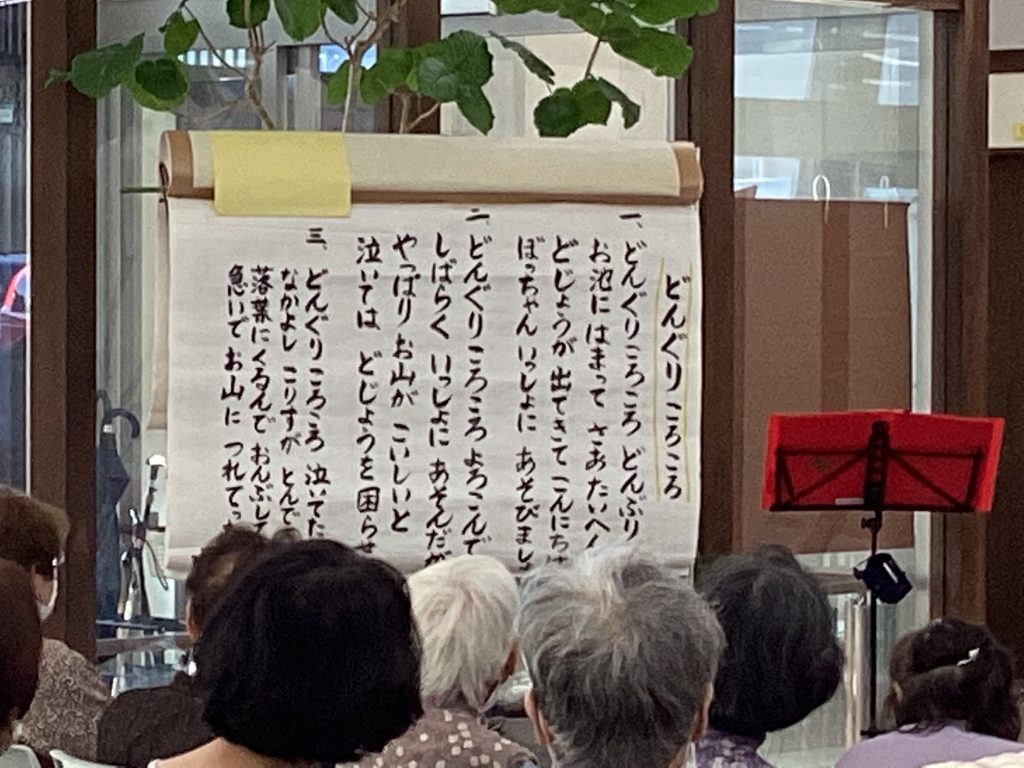 どんぐりころころ
一、どんぐりころころ どんぶり
お池にはまって さあ たいへん
どじょうが 出てきて こんにちは
ぼっちゃん いっしょに あそびまし
二、どんぐりころころ よろこんで
しばらく いっしょに あそんだが
やっぱり お山が こいしいと
泣いては どじょうを 困らせ
三、どんぐりころころ 泣いてた
なかよし こりすが とんで
落葉にくるんで おんぶして
急いで お山に つれてっ